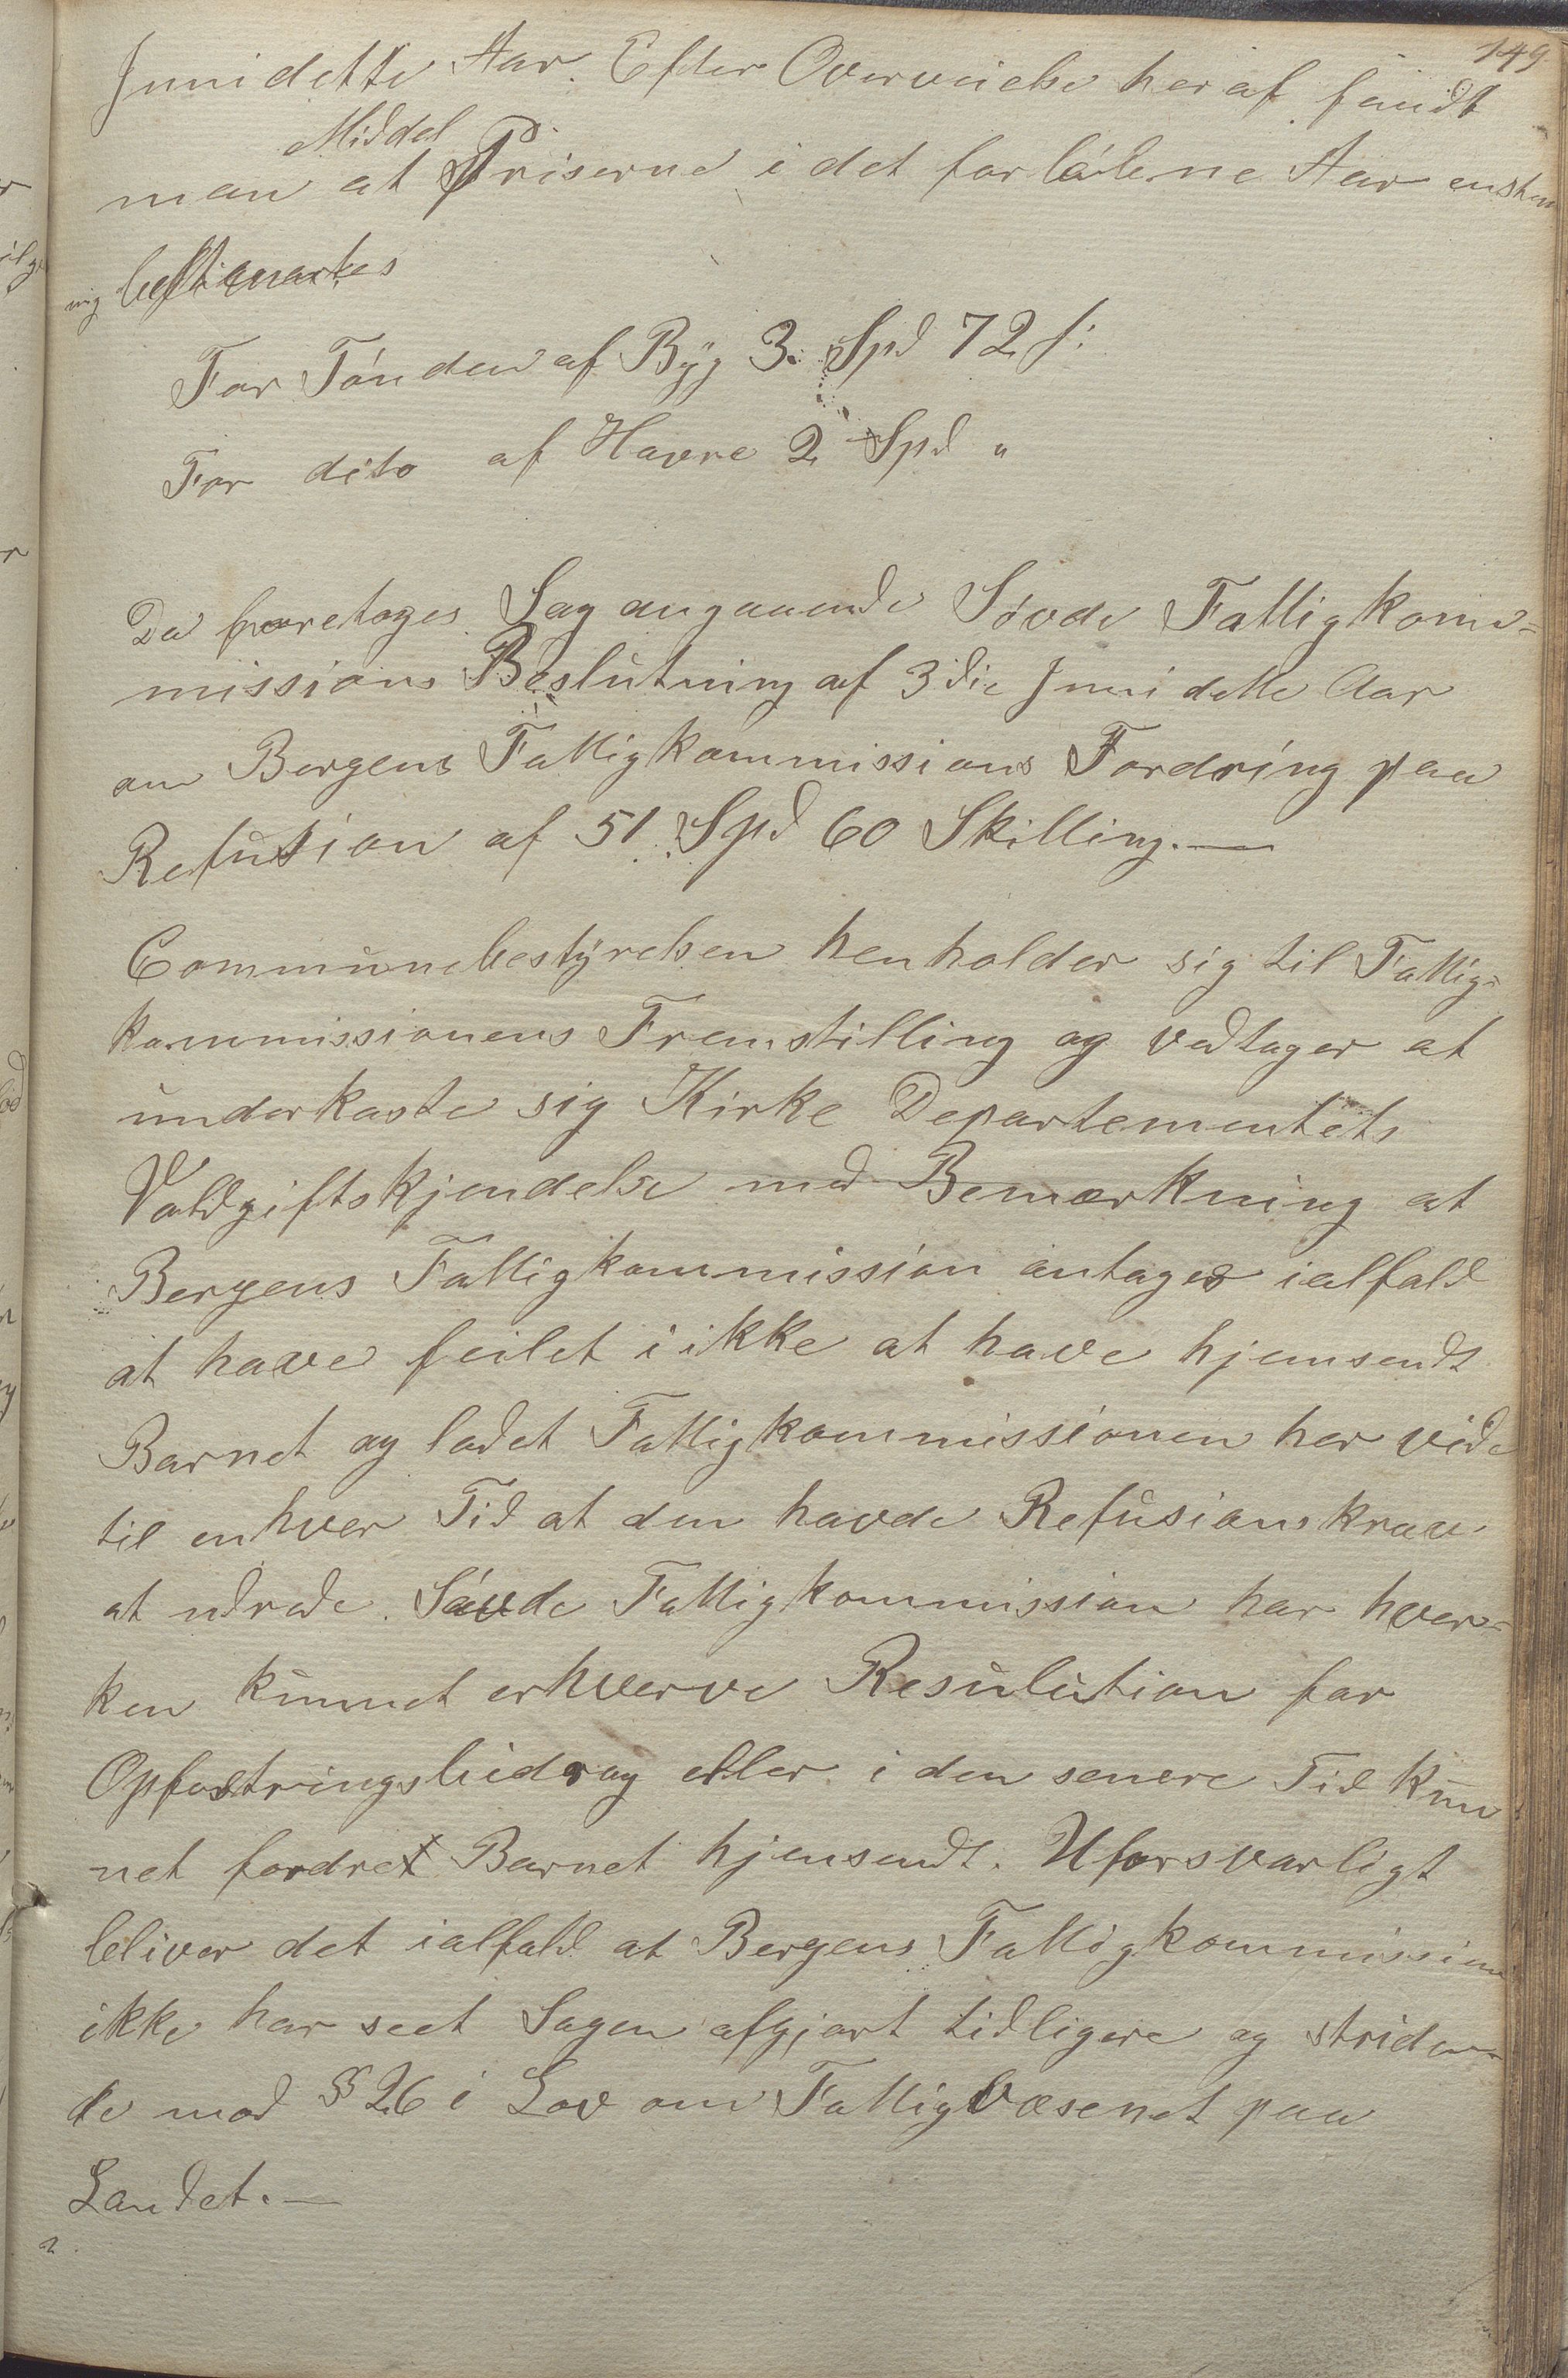 149
Juni dette Aar. Efter Overveielse heraf fandt
Middel
man at Priserne i det forløbne Aar enstem
mig bestemtes
For Tónden af Byg 3. Spd 72 s:
For dito af Havre 2 Spd "
Da foretoges Sag angaaende Sóvde Fattigkom=
missions Beslutning af 3die Juni dette Aar
om Bergens Fattigkommissions Fordring paa
Refusion af 51 Spd 60 Skilling. —
Communebestyrelsen henholder sig til Fattig=
kommissionens Fremstilling og vedtager at
underkaste sig Kirke Departementets
Voldgiftskjendelse med Bemærkning at
Bergens Fattigkommission antages ialfald
at have feilet i ikke at have hjemsendt
Barnet og ladet Fattigkommissionen her vide
til enhver Tid at den havde Refusionskrav
at udrede. Sóvde Fattigkommission har hver=
ken kunnet erhverve Resulution for
Opfostringsbidrag eller i den senere Tid kun
net fordret Barnet hjemsendt. Uforsvarligt
bliver det ialfald at Bergens Fattigkommission
ikke har seet Sagen afgjort tidligere og striden=
de mod § 26 i Lov om Fattigvæsenet paa
Landet. —